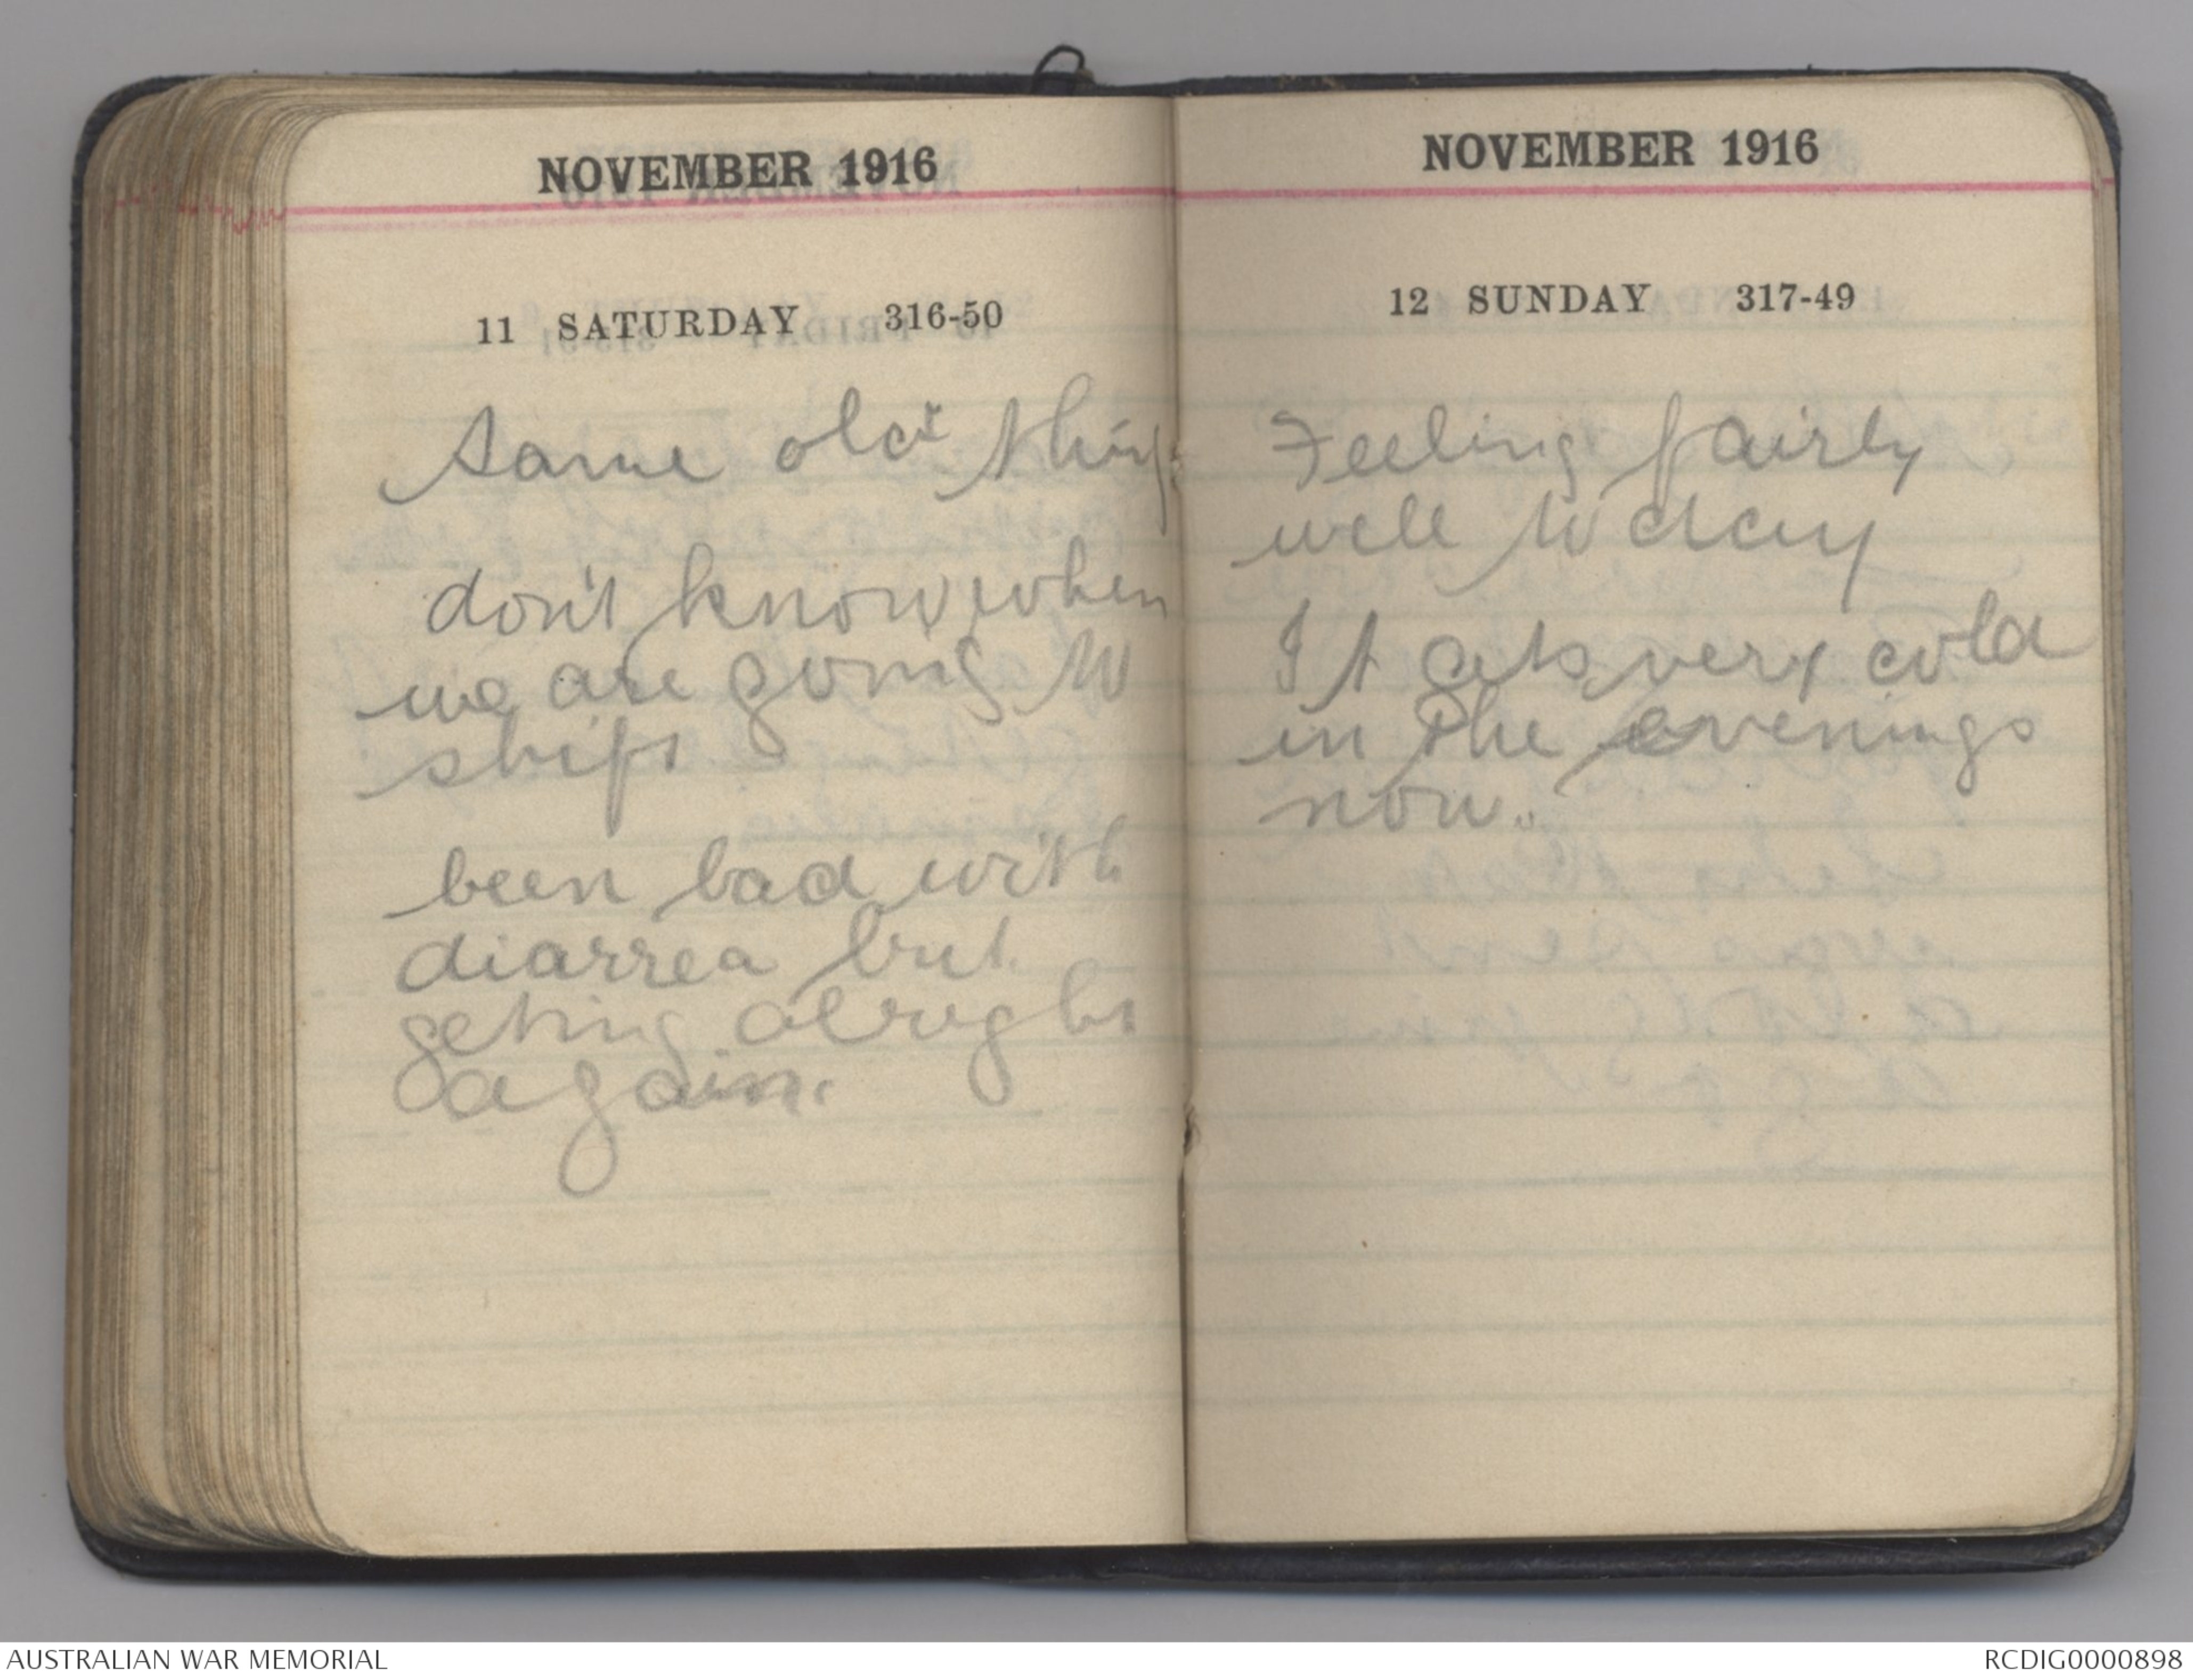 NOVEMBER 1916
11 SATURDAY 316-50
Same old thing
don't know when
we are going to
shift
been bad with
diarrea but
geting alright
again.
NOVEMBER 1916
12 SUNDAY 317-49
Feeling fairly
well to day
It gets very cold
in the evenings
now..
AUSTRALIAN WAR MEMORIAL
RCDIG0000898